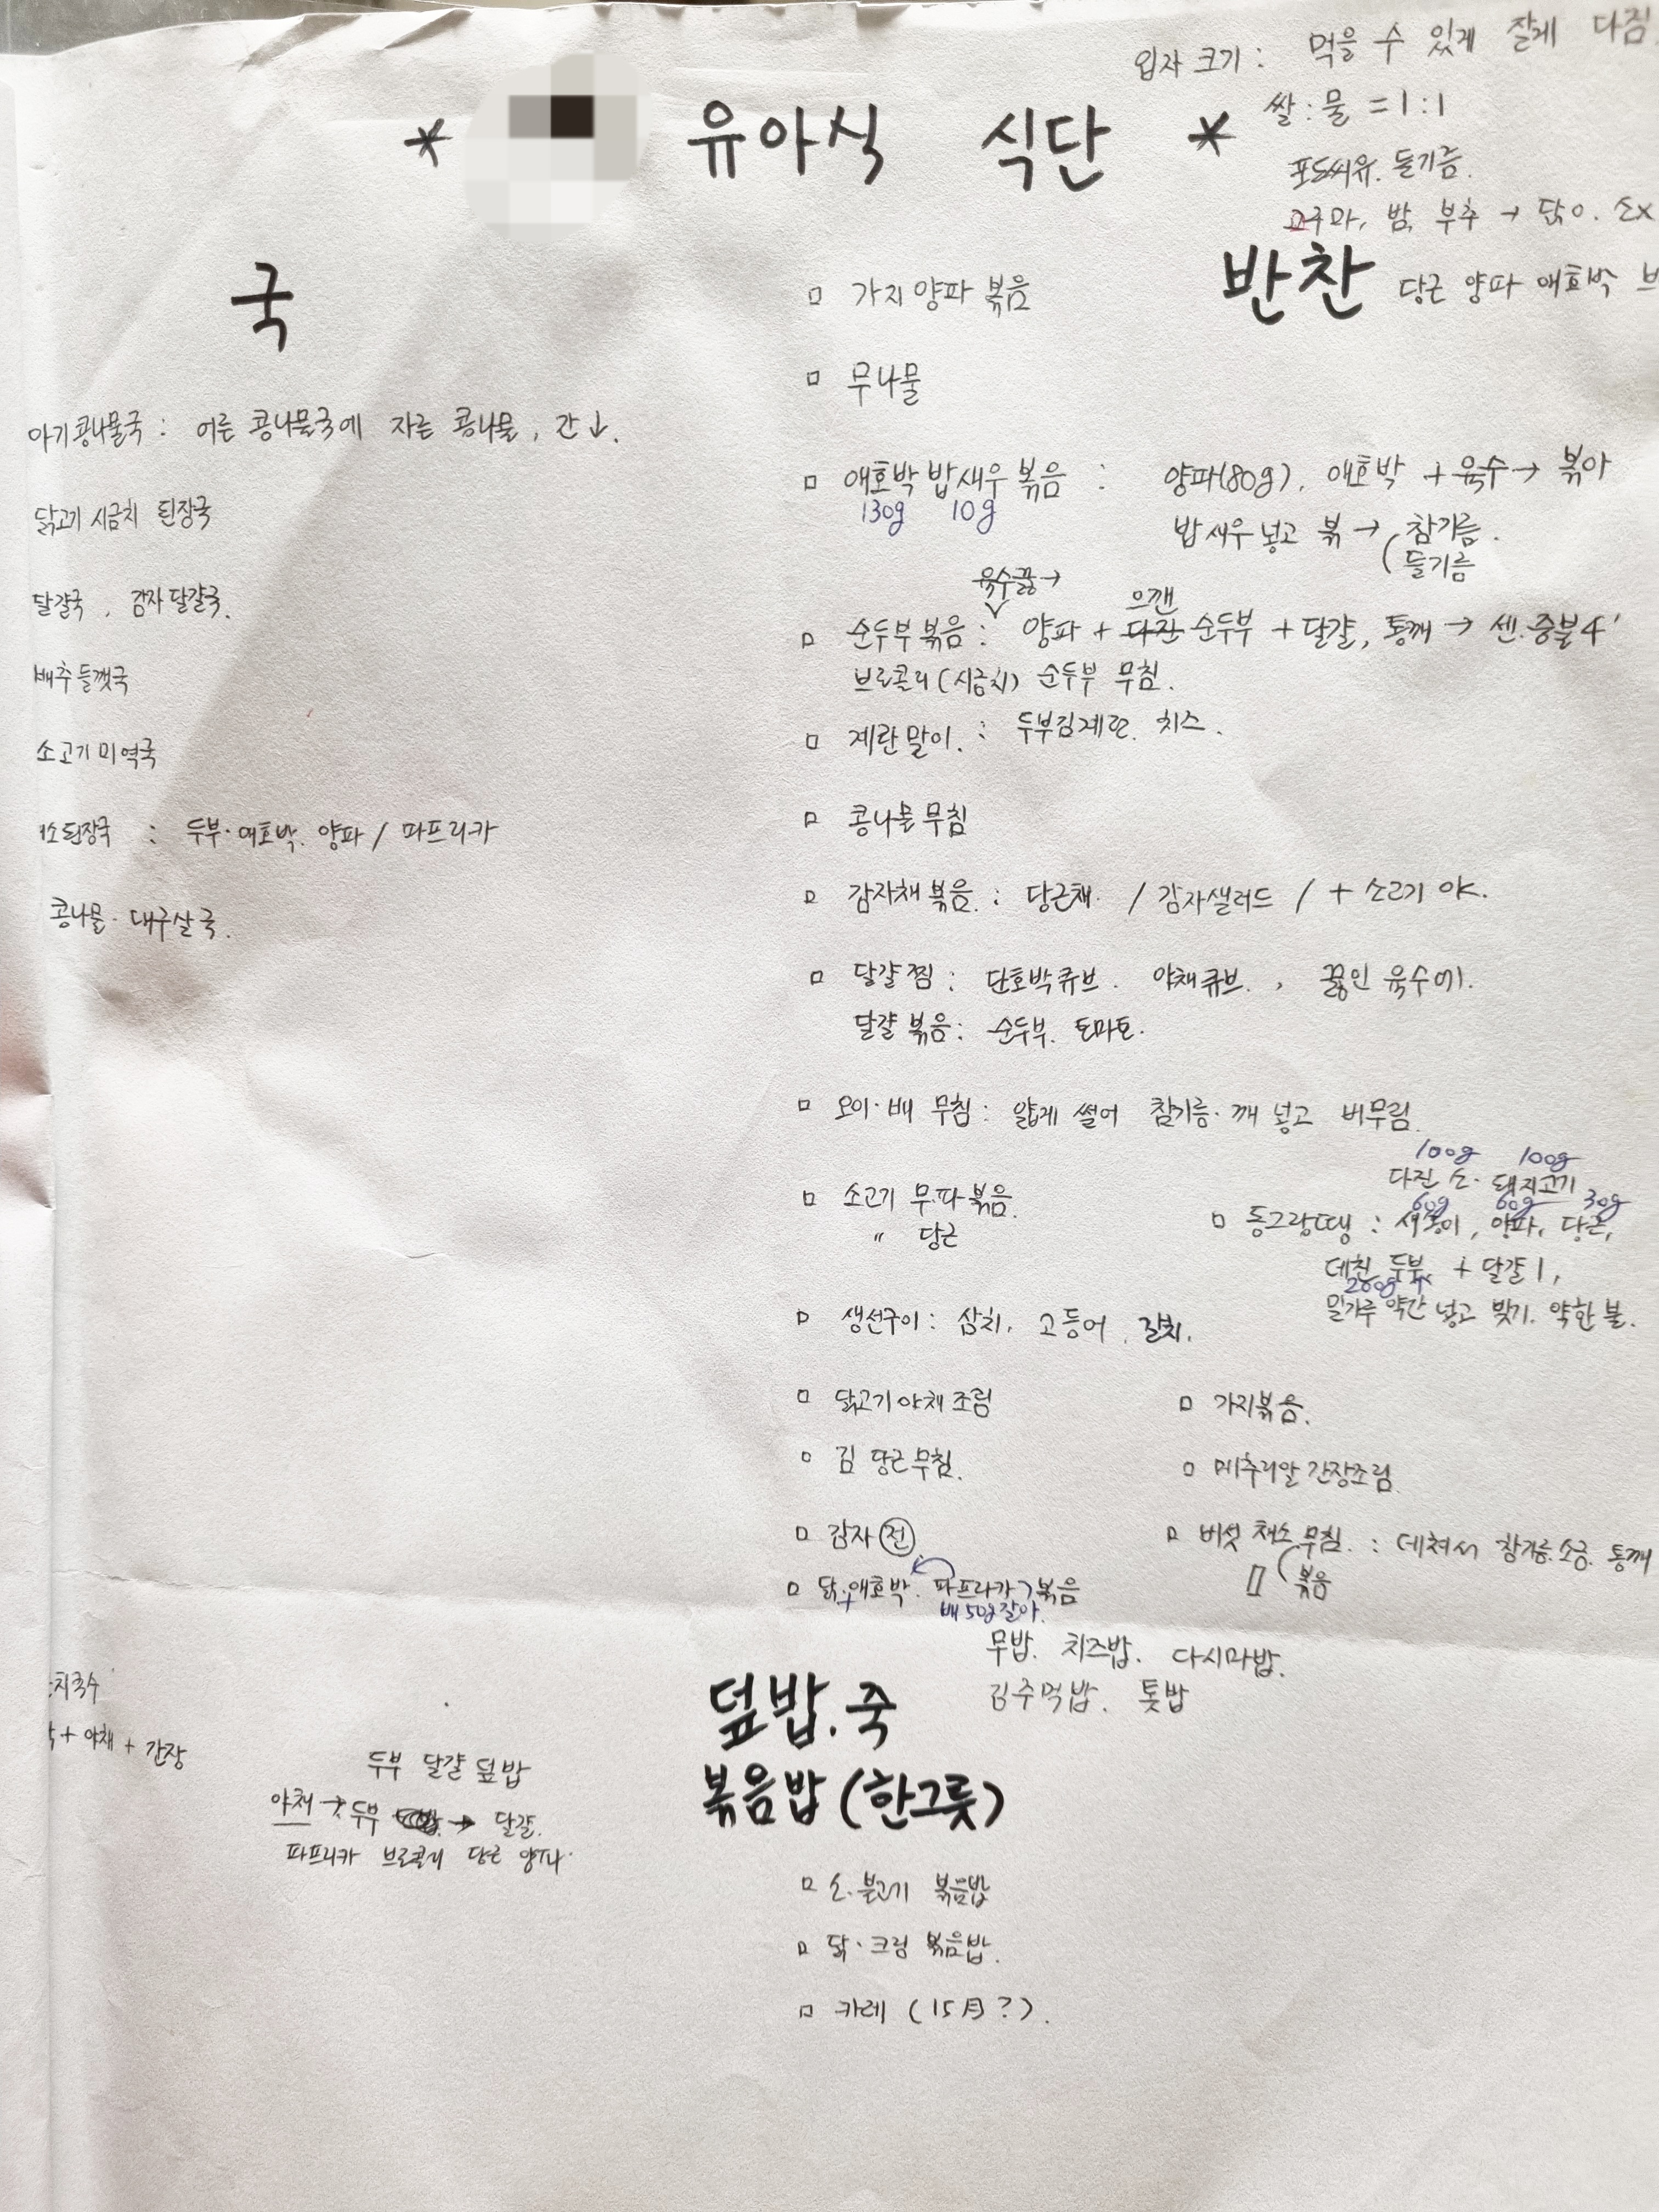 입자 크기 : 먹을 수 있게 잘게 다짐.
* 유아식 식단 *
쌀 : 물 = 1 : 1
포도씨유. 들기름.
고구마, 밤, 부추 → 닭 o. 소x
국
반찬
당근 양파 애호박 브
아기콩나물국 : 어른 콩나물국에 자른 콩나물, 간↓.
닭고기 시금치 된장국
달걀국, 감자달걀국.
배추들깻국
소고기미역국
된장국 : 두부·애호박. 양파 / 파프리카
콩나물·대구살국.
□ 가지양파 볶음
□ 무나물
□ 애호박 밥새우 볶음 : 양파(80g), 애호박 + 육수 → 볶아
130g 10g
밥새우 넣고 볶 → (참기름.
들기름
육수끓→
으깬
□ 순두부 볶음 : 양파 + 다진 순두부 + 달걀, 통깨 → 센.중불4'
브로콜리(시금치) 순두부 무침.
□ 계란말이. : 두부김계란. 치즈.
□ 콩나물무침
□ 감자채볶음. : 당근채. / 감자샐러드 / + 소고기 야.
□ 달걀찜 : 단호박큐브. 야채큐브. , 끓인 육수에.
달걀 볶음 : 순두부. 토마토.
□ 오이·배 무침 : 얇게 썰어 참기름·깨 넣고 버무림.
□ 소고기 무.파볶음.
〃 당근
100g 100g
다진 소·돼지고기
60g 60g 30g
□ 동그랑땡 : 새송이, 양파, 당근,
데친 두부 + 달걀1,
200g
밀가루 약간 넣고 빚기. 약한 불.
□ 생선구이 : 삼치, 고등어, 갈치.
□ 닭고기야채조림
□ 가지볶음.
□ 김 당근무침.
□ 메추리알 간장조림
□ 감자전
□ 버섯 채소 무침. : 데쳐서 참기름.소금. 통깨
볶음
□ 닭+애호박. 파프리카 볶음
배 50g갈아.
무밥. 치즈밥. 다시마밥.
김주먹밥. 톳밥
덮밥.죽
볶음밥(한그릇)
치국수
+ 야채 + 간장
두부 달걀 덮밥
야채 → 두부 → 달걀.
파프리카 브로콜리 당근 양파.
□ 소.불고기 볶음밥
□ 닭·크림 볶음밥.
□ 카레 (15月?).